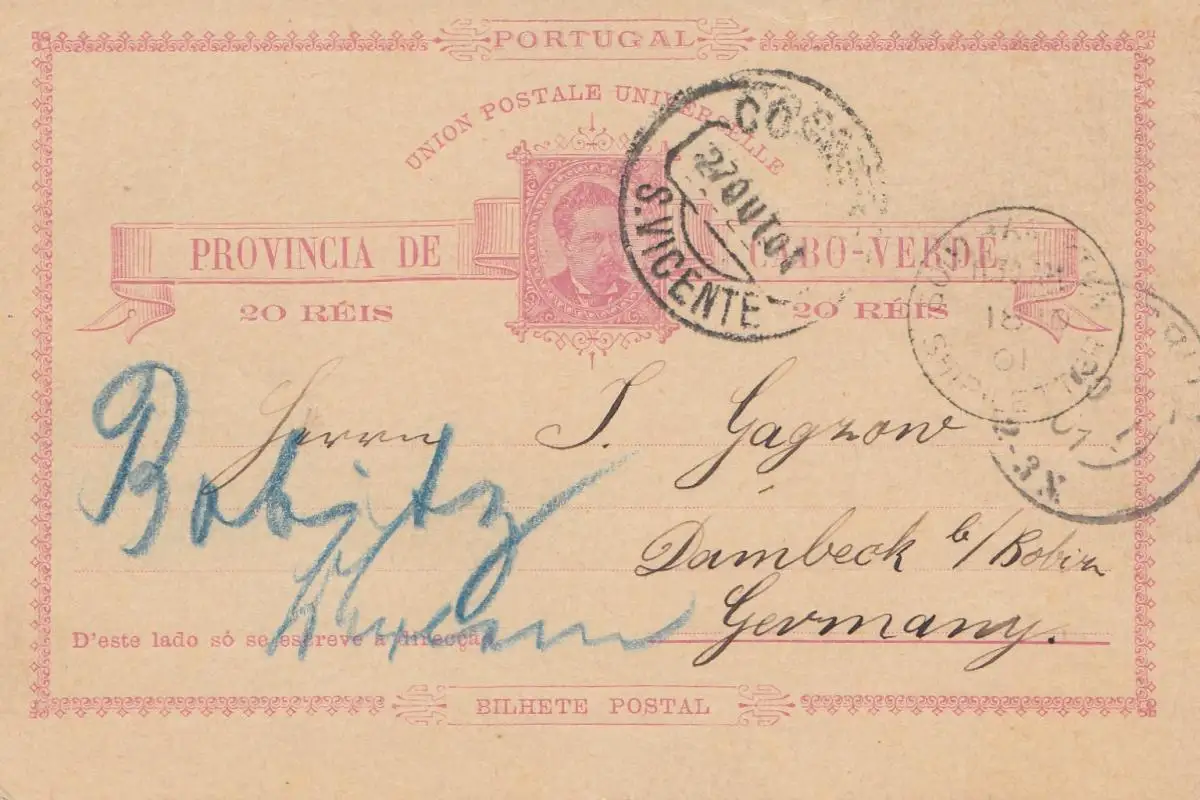 PORTUGAL
UNION POSTALE UNIVERSELLE
PROVINCIA DE CABO-VERDE
20 RÉIS 20 RÉIS
27 OUT 01
S. VICENTE
18
01
SHIP LETTER
Herrn J. Gagzow
Bobitz
Dambeck b/Bobitz
Germany.
D'este lado só se escreve a direcção
BILHETE POSTAL